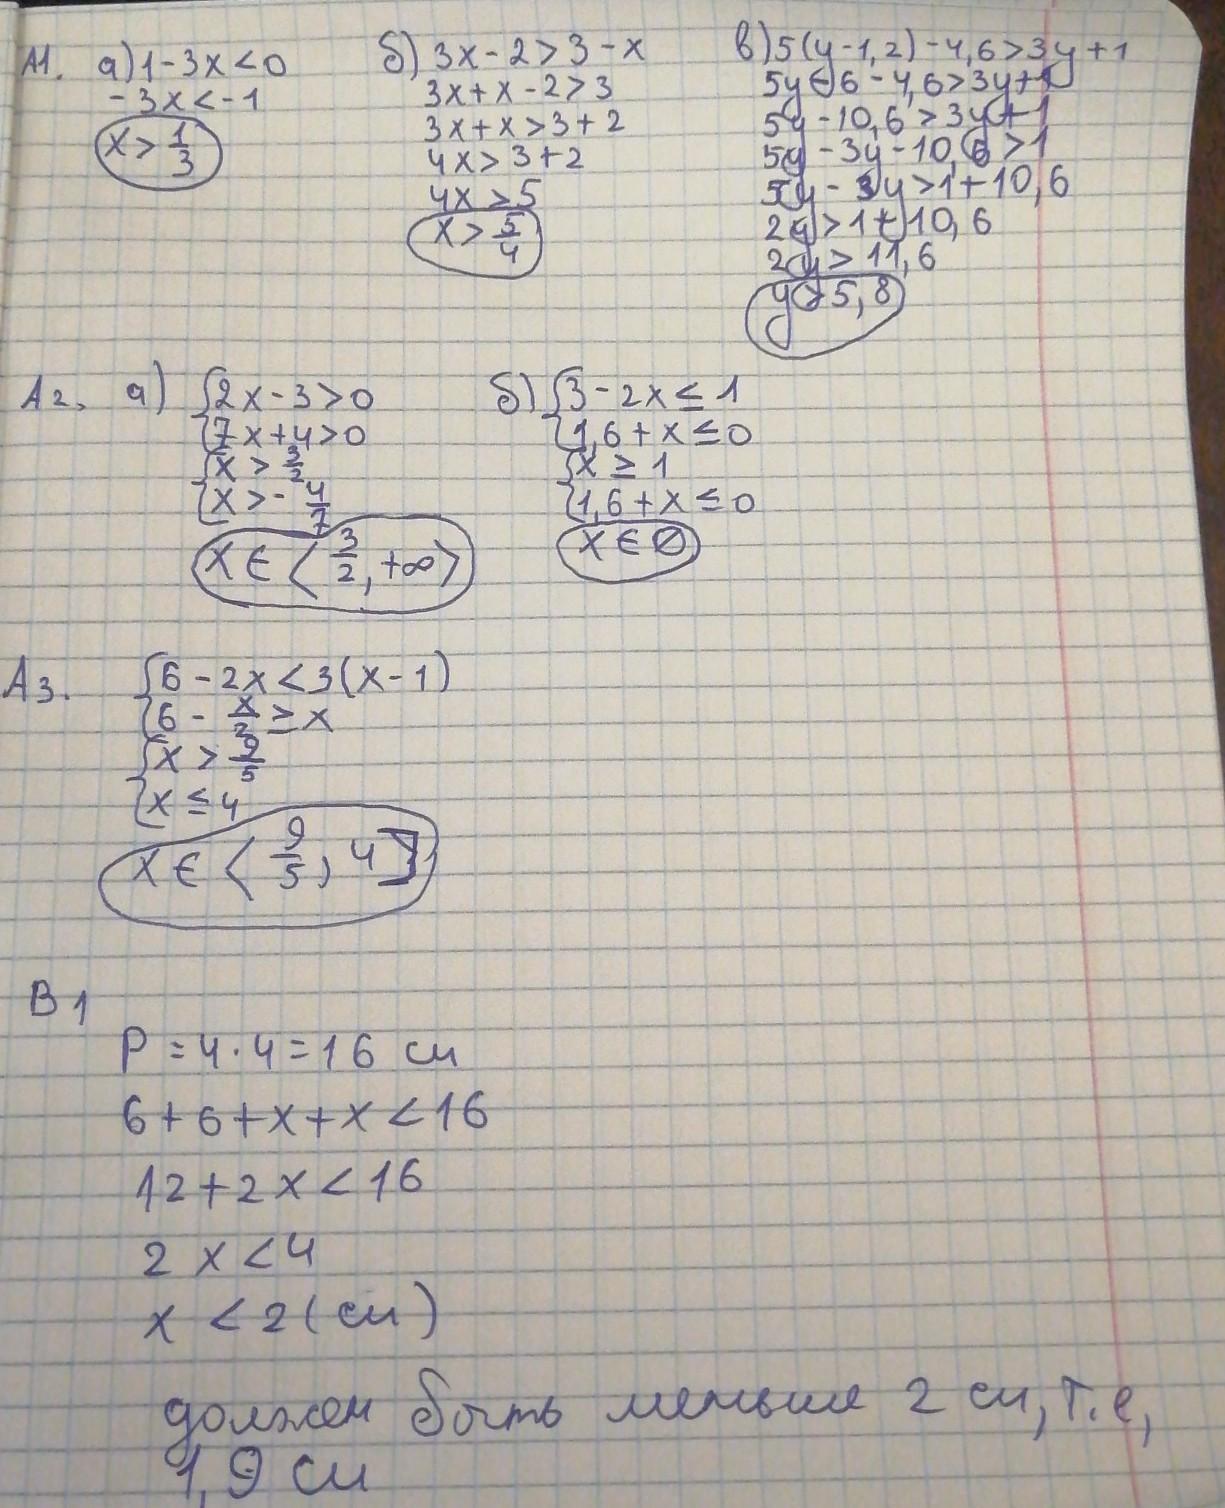 А1. а) 1 - 3x < 0
-3x < -1
x > 1/3
б) 3x - 2 > 3 - x
3x + x - 2 > 3
3x + x > 3 + 2
4x > 3 + 2
4x > 5
x > 5/4
в) 5(y - 1,2) - 4,6 > 3y + 1
5y - 6 - 4,6 > 3y + 1
5y - 10,6 > 3y + 1
5y - 3y - 10,6 > 1
5y - 3y > 1 + 10,6
2y > 1 + 10,6
2y > 11,6
y > 5,8
А2. а) {2x - 3 > 0
{7x + 4 > 0
{x > 3/2
{x > - 4/7
x ∈ ⟨3/2, +∞⟩
б) {3 - 2x ≤ 1
{1,6 + x ≤ 0
{x ≥ 1
{1,6 + x ≤ 0
x ∈ ∅
А3. {6 - 2x < 3(x - 1)
{6 - x/2 ≥ x
{x > 9/5
{x ≤ 4
x ∈ ⟨9/5, 4]
В1
P = 4 · 4 = 16 см
6 + 6 + x + x < 16
12 + 2x < 16
2x < 4
x < 2 (см)
должен быть меньше 2 см, т.е,
1,9 см